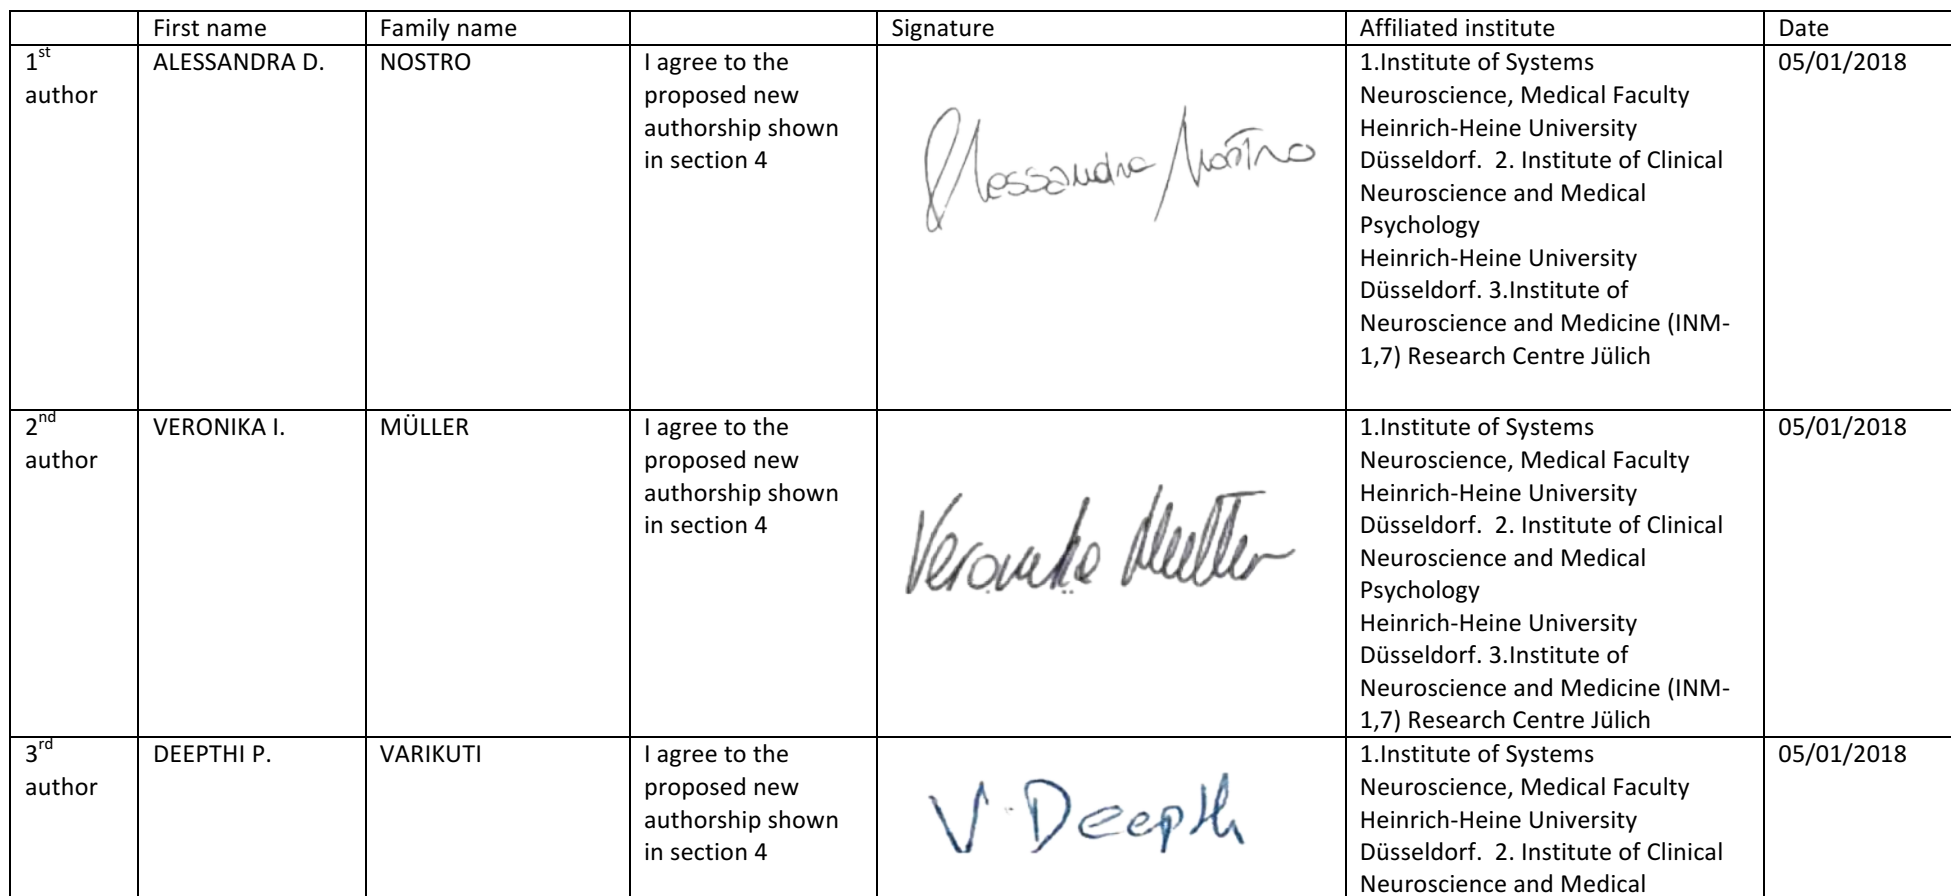 First name Family name Signature Affiliated institute Date
1st author
ALESSANDRA D.
NOSTRO
I agree to the
proposed new
authorship shown
in section 4
Alessandra Nostro
1.Institute of Systems
Neuroscience, Medical Faculty
Heinrich-Heine University
Düsseldorf.  2. Institute of Clinical
Neuroscience and Medical
Psychology
Heinrich-Heine University
Düsseldorf. 3.Institute of
Neuroscience and Medicine (INM-
1,7) Research Centre Jülich
05/01/2018
2nd author
VERONIKA I.
MÜLLER
I agree to the
proposed new
authorship shown
in section 4
Veronika Müller
1.Institute of Systems
Neuroscience, Medical Faculty
Heinrich-Heine University
Düsseldorf.  2. Institute of Clinical
Neuroscience and Medical
Psychology
Heinrich-Heine University
Düsseldorf. 3.Institute of
Neuroscience and Medicine (INM-
1,7) Research Centre Jülich
05/01/2018
3rd author
DEEPTHI P.
VARIKUTI
I agree to the
proposed new
authorship shown
in section 4
V. Deepthi
1.Institute of Systems
Neuroscience, Medical Faculty
Heinrich-Heine University
Düsseldorf.  2. Institute of Clinical
Neuroscience and Medical
05/01/2018